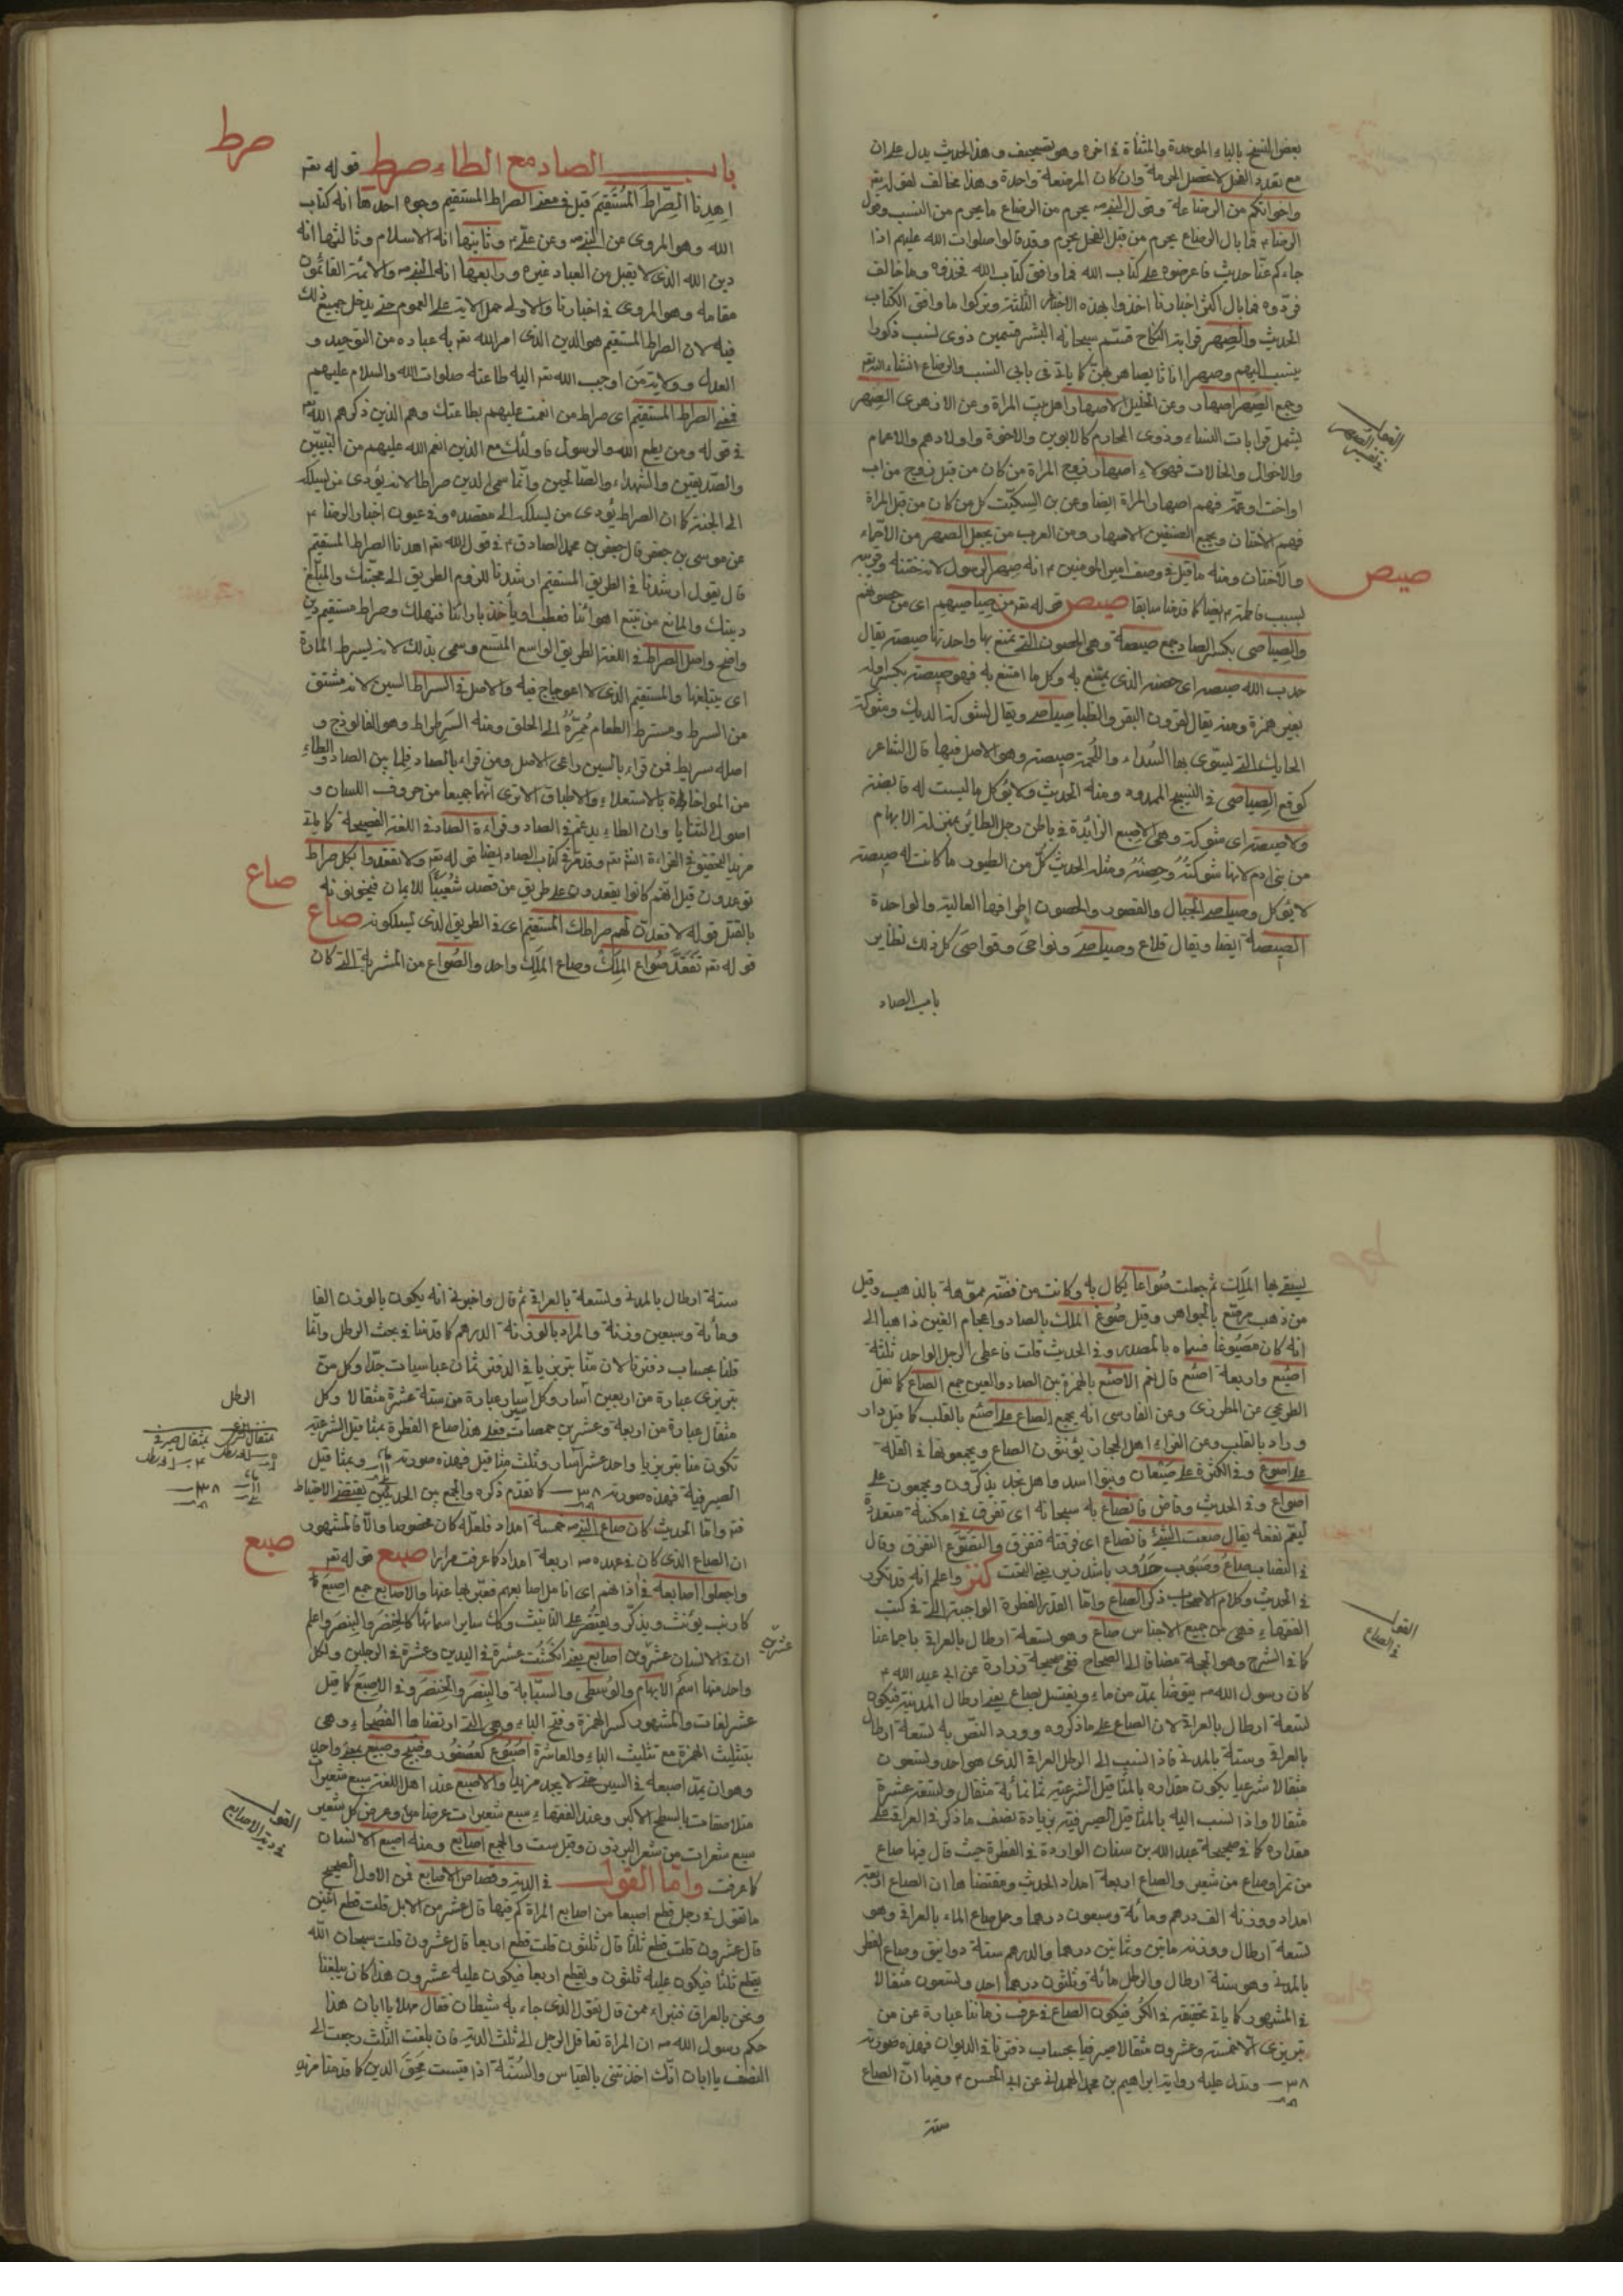 بعض النسخ بالباء الموحدة والمثناة في اخره وهو تصحيف وهذا الحديث يدل على ان
مع تعدد الفحل لا تحصل الحرمة وان كان المرضعة واحدة وهذا مخالف لقوله تعر
واخواتكم من الرضاعة وقول النبي ص يحرم من الرضاع ما يحرم من النسب وقول
الرضا ع فما بال الرضاع يحرم من قبل الفحل يحرم وقد قالوا صلوات الله عليهم اذا
جاءكم عنا حديث فاعرضوه على كتاب الله فما وافق كتاب الله فخذوه وما خالف
فردوه فما بال اكثر اخبارنا اخذوا بهذه الاخبار الثلثة وتركوا ما وافق الكتاب
الحديث والصهر قرابة النكاح قسم سبحانه البشر قسمين ذوى نسب ذكورا
ينسب اليهم وصهرا اناثا يصاهر بهن كما ياتى في بابي النسب والرضاع انشاء الله تعر
وجمع الصهر اصهار وعن الخليل الاصهار اهل بيت المراة وعن الازهرى الصهر
يشمل قرابات النساء وذوى المحارم كالابوين والاخوة واولادهم والاعمام
والاخوال والخالات فهولاء اصهار زوج المراة من كان من قبل زوج من اب
او اخت او عم فهم اصهار المراة ايضا وعن بن السكيت كل من كان من قبل المراة
فهم الاختان ويجمع الصنفين الاصهار ومن العرب من يجعل الصهر من الاحماء
والاختان ومنه ما قيل في وصف امير المومنين ع انه صهر الرسول لانه ختنه وقربه
بسبب فاطمة ع ايضا كما قدمنا سابقا صيص قوله تعر من صياصيهم اى من حصونهم
والصياصى بكسر الصاد جمع صيصة وهى الحصون التى يمتنع بها واحدتها صيصة يقال
حدب الله صيصه اى حصنه الذى يمتنع به وكل ما امتنع به فهو صيصة بكسر اوله
بغير همزة ومنه يقال لقرون البقر والظبا صياصى ويقال لشوكة الديك وشوكة
الحايك التى يسوى بها السداء واللحمة صيصة وهو الاصل فيها قال الشاعر
كوقع الصياصى في النسيج الممدود ومنه الحديث ولا يؤكل ما ليست له قانصة
ولا صيصة اى شوكة وهى الاصبع الزائدة في باطن رجل الطائر بمنزلة الابهام
من بنى ادم لانها شوكته وحصنه ومثله الحديث كل من الطيور ما كانت له صيصة
لا يؤكل وصياصى الجبال والقصور والحصون اطرافها العالية والواحدة
الصيصة ايضا ويقال قلاع وصياصى ونواحى وقواصى كل ذلك نظاير
باب الصاد
القول
في تفسير الصهر
صيص
صرط
باب الصاد مع الطاء صرط قوله تعر
اهدنا الصراط المستقيم قيل في معنى الصراط المستقيم وجوه احدها انه كتاب
الله وهو المروى عن النبي ص وعن علي ع وثانيها انه الاسلام وثالثها انه
دين الله الذى لا يقبل من العباد غيره ورابعها انه النبي ص والائمة القائمون
مقامه وهو المروى في اخبارنا والاولى حمل الاية على العموم حتى يدخل جميع ذلك
فيه لان الصراط المستقيم هو الدين الذى امر الله تعر به عباده من التوحيد و
العدل وولاية من اوجب الله تعر اليه طاعته صلوات الله والسلام عليهم
فمعنى الصراط المستقيم اى صراط من انعمت عليهم بطاعتك وهم الذين ذكرهم الله تعر
في قوله ومن يطع الله والرسول فاولئك مع الذين انعم الله عليهم من النبيين
والصديقين والشهداء والصالحين وانما سمى الدين صراطا لانه يؤدى من يسلكه
الى الجنة كما ان الصراط يؤدى من يسلكه الى مقصده وفي عيون اخبار الرضا ع
عن موسى بن جعفر قال جعفر بن محمد الصادق ع في قول الله تعر اهدنا الصراط المستقيم
قال يقول ارشدنا في الطريق المستقيم ارشدنا للزوم الطريق الى محبتك والمبلغ
دينك والمانع من نتبع اهوائنا فنعطب او نأخذ بارائنا فنهلك وصراط مستقيم دين
واضح واصل الصراط في اللغة الطريق الواسع المتسع وسمى بذلك لانه يسرط المارة
اى يبتلعها والمستقيم الذى لا اعوجاج فيه والاصل في السراط السين لانه مشتق
من السرط ومسترط الطعام ممره الى الحلق ومنه السرطراط وهو الفالوذج و
اصله سريط فمن قراء بالسين راعى الاصل ومن قراء بالصاد فلما بين الصاد والطاء
من المواخاة بالاستعلاء والاطباق الا ترى انهما جميعا من حروف اللسان و
اصول الثنايا وان الطاء يدغم في الصاد وقراءة الصاد في اللغة الفصيحة كما ياتى
مزيد التحقيق في القراءة انشا تعر وقد مر في كتاب الصاد ايضا قوله تعر ولا تقعدوا بكل صراط
توعدون قيل انهم كانوا يقعدون على طريق من قصد شعيبا للايمان فيخوفونه
بالقتل قوله لاقعدن لهم صراطك المستقيم اى في الطريق الذى يسلكونه صاع
قوله تعر نفقد صواع الملك وصاع الملك واحد والصواع من المشربة التى كان
صاع
يسقى بها الملك ثم جعلت صواعا يكال به وكانت من فضة مموهة بالذهب وقيل
من ذهب مرصع بالجواهر وقيل صوغ الملك بالصاد واعجام الغين ذاهبا الى
انه كان مصوغا فسماه بالمصدر وفي الحديث قلت فاعطى الرجل الواحد ثلثة
اصيع واربعة اصيع قال نعم الاصع بالهمزة بين الصاد والعين جمع الصاع كما نقل
الطريحى عن المطرزى وعن الفارسى انه يجمع الصاع على اصع بالقلب كما قيل دار
وراد بالقلب وعن الفراء اهل الحجاز يؤنثون الصاع ويجمعونها في القلة
على اصوع وفي الكثرة على صيعان وبنو اسد واهل نجد يذكرون ويجمعون على
اصواع وفي الحديث وفاض فانصاع به سبحانه اى تفرق في امكنة متعددة
ليعم نفعه يقال صعت الشئ فانصاع اى فرقته فتفرق والتصوع التفرق وقال
في الحديث وكلام الاصحاب ذكر الصاع واما القدر الفطرة الواجبة التى في كتب
الفقهاء فهى من جميع الاجناس صاع وهو تسعة ارطال بالعراقي باجماعنا
كما في الشرح وهو الحجة مضافا الى الصحاح ففي صحيحة زرارة عن ابي عبد الله ع
كان رسول الله ص يتوضا بمد من ماء ويغتسل بصاع يعنى ارطال المدينة فيكون
تسعة ارطال بالعراقي لان الصاع على ما ذكروه وورد النص به تسعة ارطال
بالعراقي وستة بالمدني فاذا نسب الى الرطل العراقي الذى هو احد وتسعون
مثقالا شرعيا يكون مقداره بالمثاقيل الشرعية ثمانمائة مثقال وتسعة عشرة
مثقالا واذا نسب اليه بالمثاقيل الصيرفية بزيادة نصف ما ذكر في العراقي على
مقداره كما في صحيحة عبد الله بن سنان الواردة في الفطرة حيث قال فيها صاع
من تمر او صاع من شعير والصاع اربعة امداد الحديث ومقتضاها ان الصاع اربعة
امداد ووزنه الف درهم ومائة وسبعون درهما وحمل صاع الماء بالعراقي وهو
تسعة ارطال ووزنه مائتين وثمانين درهما والدرهم ستة دوانيق وصاع الفطر
بالمدنى وهو ستة ارطال والرطل مائة وثلثون درهما احد وتسعون مثقالا
في المشهور كما ياتى تحقيقه في الكر فيكون الصاع في عرف زماننا عبارة عن من
تبريزى الا خمسة وعشرون مثقالا صيرفيا بحساب دفترنا في الديوان فهذه صورته
ويدل عليه رواية ابراهيم بن محمد الهمداني عن ابي الحسن ع وفيها ان الصاع
ستة
القول
في الصاع
ستة ارطال بالمدني وتسعة بالعراقي ثم قال واخبرني انه يكون بالوزن الفا
ومائة وسبعين وزنة والمراد بالوزنة الدرهم كما قدمنا في بحث الرطل وانما
قلنا بحساب دفترنا لان منا تبريزيا في الدفتر ثمان عباسيات جدا وكل من
تبريزى عبارة من اربعين آسار وكل آسار عبارة من ستة عشرة مثقالا وكل
مثقال عبارة من اربعة وعشرين حمصات فعلى هذا صاع الفطرة بمثاقيل الشرعية
تكون منا تبريزيا واحد عشر آسار وثلث مثاقيل فهذه صورته وبمثاقيل
الصيرفية فهذه صورته كما تقدم ذكره والجمع بين الحديثين يقتضى الاحتياط
فتر واما الحديث كان صاع النبي ص خمسة امداد فلعله كان مخصوصا والا فالمشهور
ان الصاع الذى كان في عهده ص اربعة امداد كما عرفت مرارا صبع قوله تعر
واجعلوا اصابعهم في اذانهم اى انامل اصابعهم فعبر بها عنها والاصابع جمع اصبع
كارنب يؤنث ويذكر ويقتصر على التانيث وكك ساير اسمائها كالخنصر والبنصر واعلم
ان في الانسان عشرون اصابع يعنى عشرة في اليدين وعشرة في الرجلين ولكل
واحد منها اسم الابهام والوسطى والسبابة والبنصر والخنصر وفي الاصبع كما قيل
عشر لغات والمشهور كسر الهمزة وفتح الباء وهى التى ارتضاها الفصحاء وهى
بتثليث الهمزة مع تثليث الباء والعاشرة اصبوع كعصفور وصبح وصبيع بمعنى واحد
وهو ان يمد اصبعه في السير حتى لا يجد مزيدا والاصبع عند اهل اللغة سبع شعيرات
متلاصقات بالسطح الاكبر وعند الفقهاء سبع شعيرات عرضا وعرض كل شعير
سبع شعرات من شعر البرذون وقيل ست والجمع اصابع ومنه اصبع الانسان
كما عرفت واما القول في الدية وقصاص الاصابع فمن الاول الصحيح
ما تقول في رجل قطع اصبعا من اصابع المراة كم فيها قال عشر من الابل قلت قطع اثنين
قال عشرون قلت قطع ثلثا قال ثلثون قلت قطع اربعا قال عشرون قلت سبحان الله
يقطع ثلثا فيكون عليه ثلثون ويقطع اربعا فيكون عليه عشرون هذا كان يبلغنا
ونحن بالعراق فنبراء ممن قال نقول الذى جاء به شيطان فقال مهلا يا ابان هذا
حكم رسول الله ص ان المراة تعاقل الرجل الى ثلث الدية فان بلغت الثلث رجعت الى
النصف يا ابان انك اخذتنى بالقياس والسنة اذا قيست محق الدين كما قدمنا مزيد
الرطل
بمثقال شرعى
بمثقال صيرفي
صبع
القول
في دية الاصابع